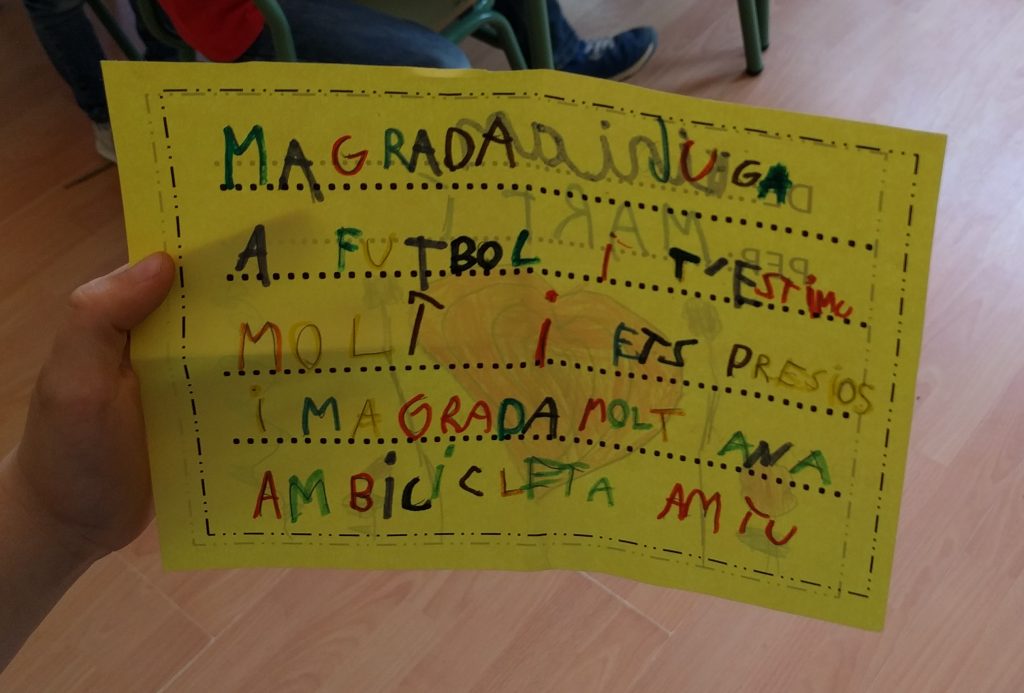 MAGRADA JUGA
A FUTBOL i T'ESTiMU
MOLT i ETS PRESiOS
i MAGRADA MOLT ANA
AMBiCiCLETA AM TU